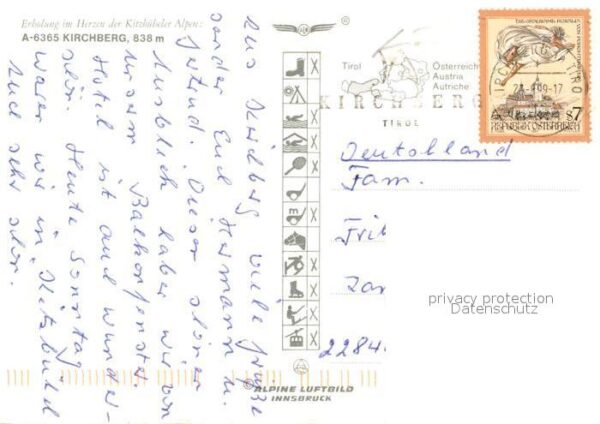 Erholung im Herzen der Kitzbüheler Alpen:
A-6365 KIRCHBERG, 838 m
Aus Kirchberg viele Grüße
sendet Euch Hermann u.
Irmtrud. Dieser schöne
Ausblick haben wir von
unserm Balkonfenster.
Hotel ist auch wunder-
schön. Heute Sonntag
waren wir in Kitzbühel
auch sehr schön.
Tirol
Österreich
Austria
Autriche
KIRCHBERG
TIROL
REPUBLIK ÖSTERREICH
S7
Deutschland
Fam.
2284
privacy protection
Datenschutz
© ALPINE LUFTBILD
INNSBRUCK